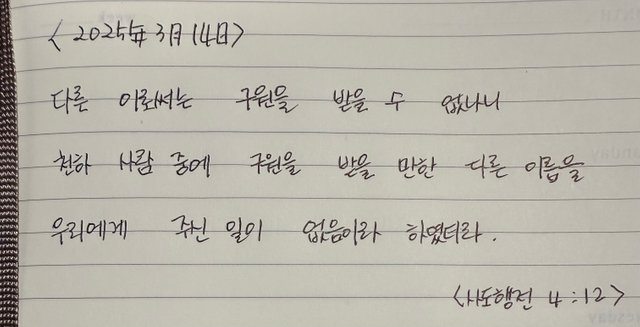 < 2025年 3月 14日 >
다른 이로써는 구원을 받을 수 없나니
천하 사람 중에 구원을 받을 만한 다른 이름을
우리에게 주신 일이 없음이라 하였더라.
<사도행전 4:12>